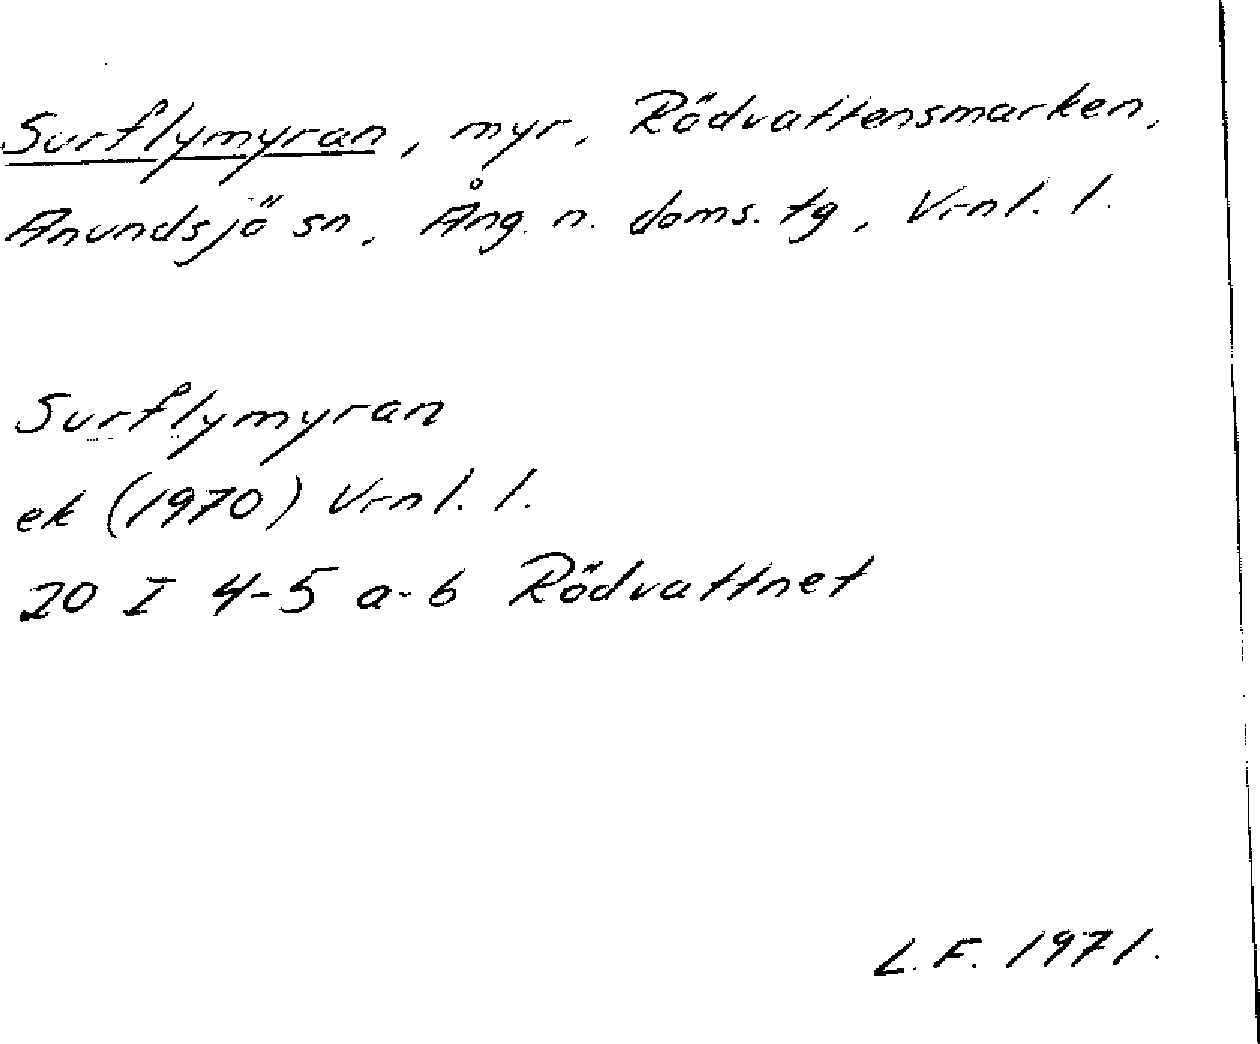 Surflymyran, myr, Rödvattensmarken,
Anundsjö sn, Ång. n. doms. tg, Vrnl. l.
Surflymyran
ek (1970) Vrnl. l.
20 I 4-5 a-b Rödvattnet
L.F. 1971.